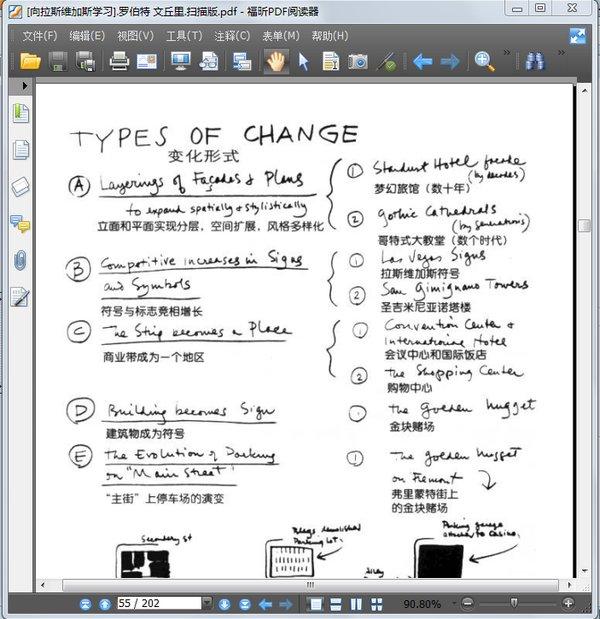 [向拉斯维加斯学习].罗伯特 文丘里.扫描版.pdf - 福昕PDF阅读器
文件(F) 编辑(E) 视图(V) 工具(T) 注释(C) 表单(M) 帮助(H)
TYPES OF CHANGE
变化形式
A Layerings of Façades & Plans
to expand spatially & stylistically
立面和平面实现分层，空间扩展，风格多样化
1 Stardust Hotel facade
(by decades)
梦幻旅馆（数十年）
2 Gothic Cathedrals
(by generations)
哥特式大教堂（数个时代）
B Competitive increases in Signs
and Symbols
符号与标志竞相增长
1 Las Vegas Signs
拉斯维加斯符号
2 San Gimignano Towers
圣吉米尼亚诺塔楼
C The Strip becomes a Place
商业带成为一个地区
1 Convention Center &
International Hotel
会议中心和国际饭店
2 the Shopping Center
购物中心
D Building becomes Sign
建筑物成为符号
1 The Golden Nugget
金块赌场
E The Evolution of Parking
on "Main Street"
“主街”上停车场的演变
1 The Golden Nugget
on Fremont
弗里蒙特街上
的金块赌场
Secondary st
Bldgs demolished
Parking lot.
Parking garage
attached to Casino.
Alley
55 / 202
90.80%